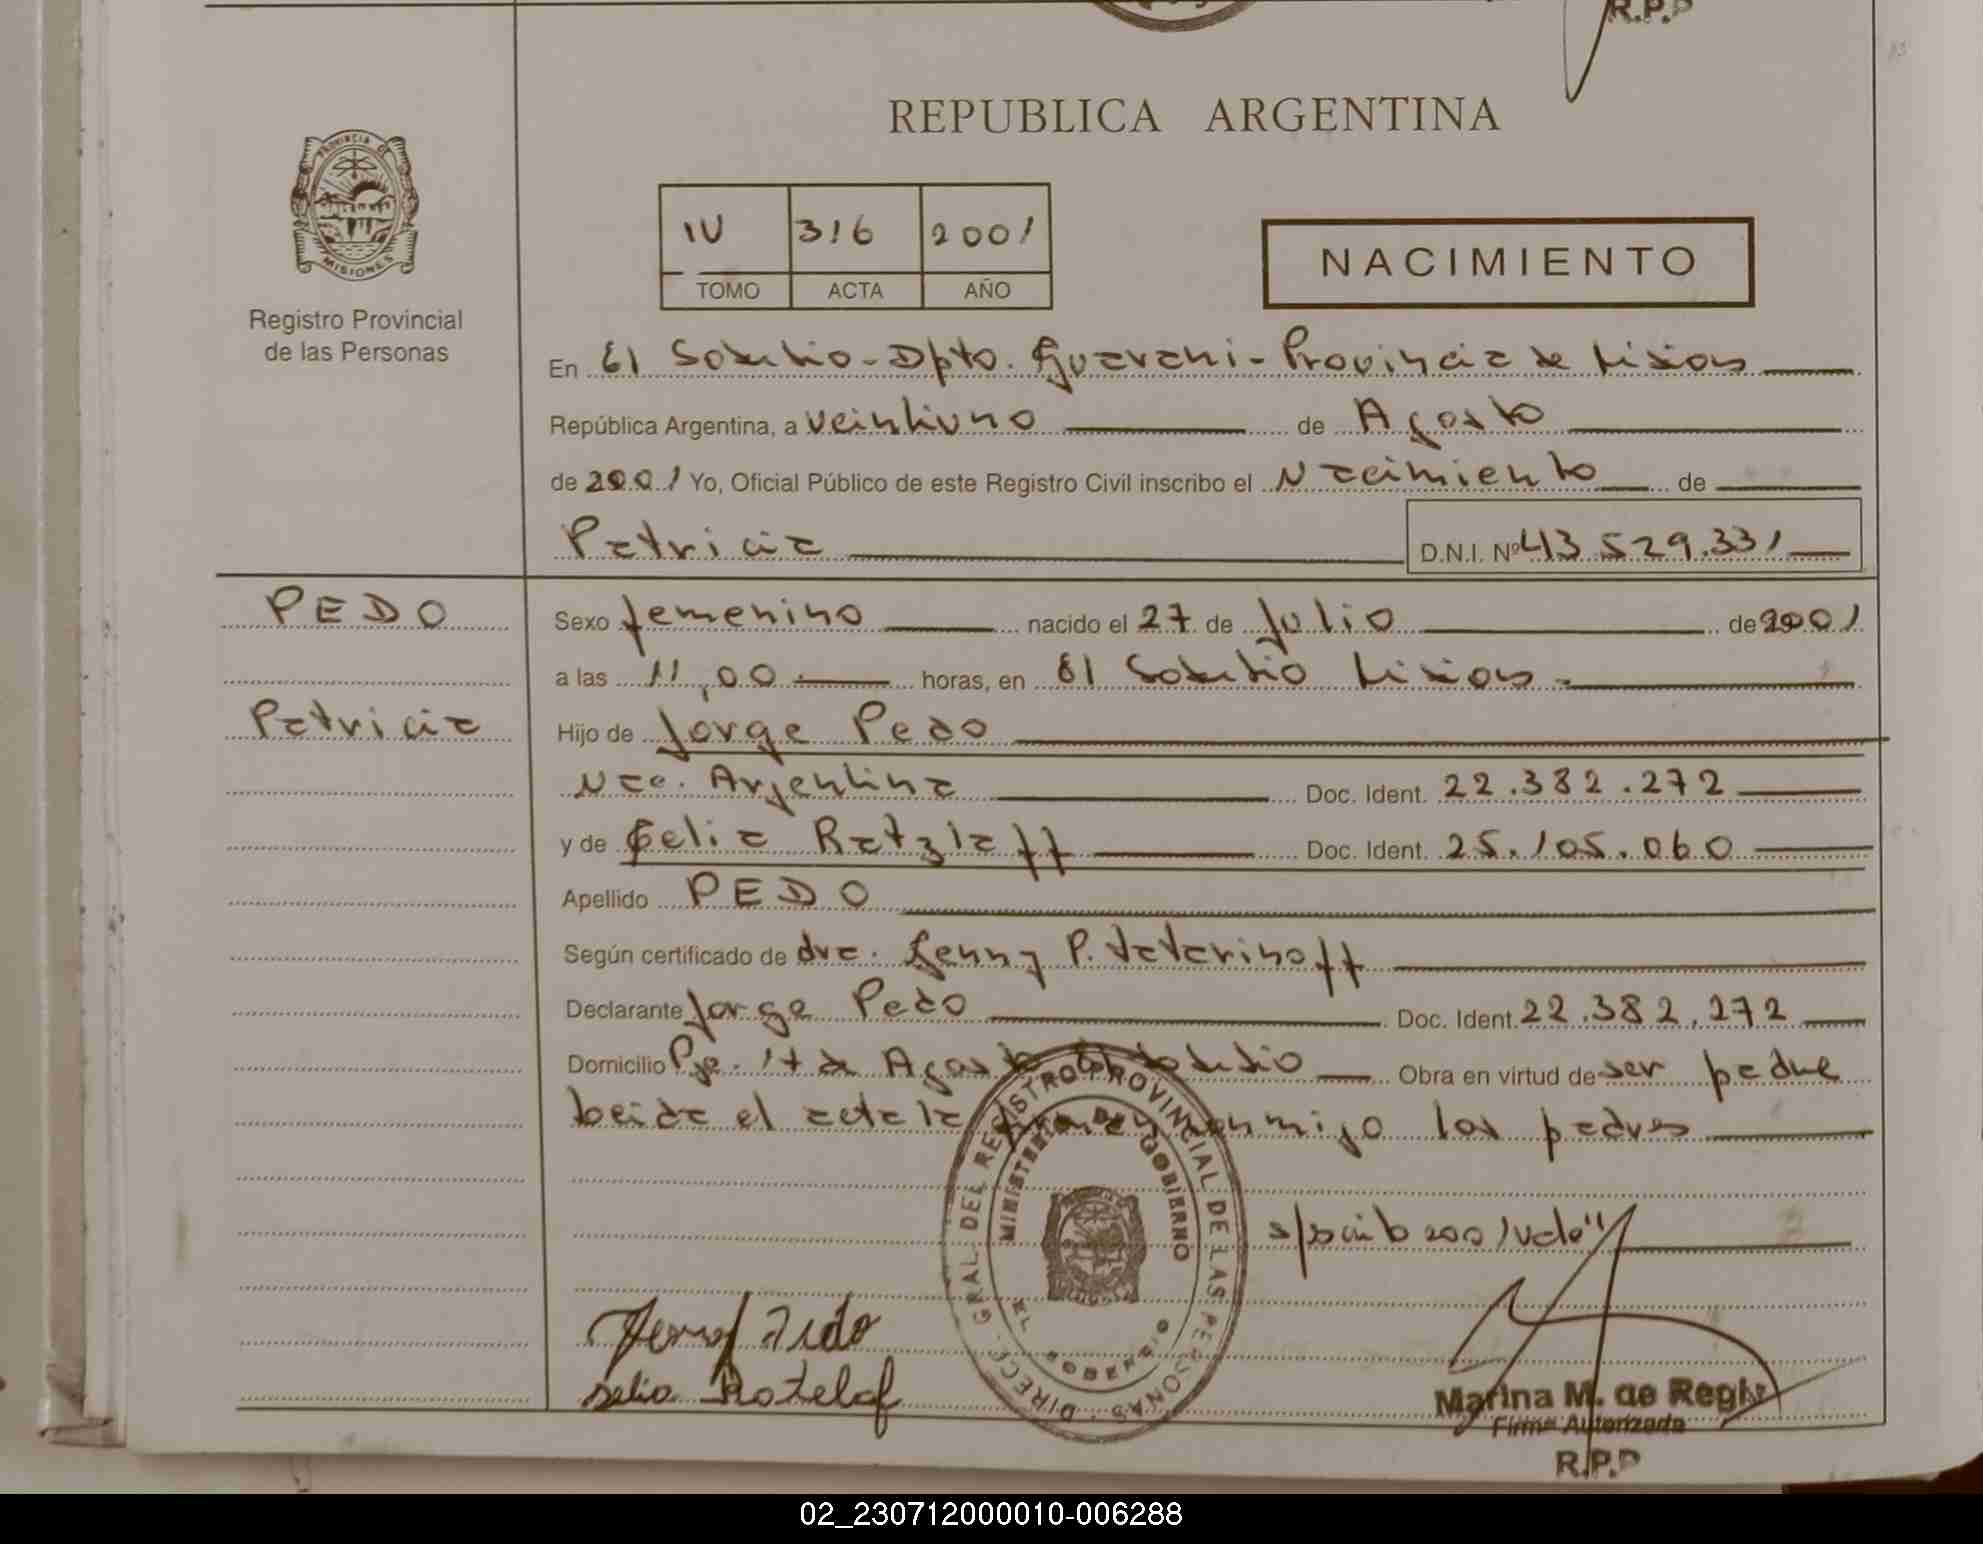 R.P.P
REPUBLICA ARGENTINA
PROVINCIA DE
MISIONES
Registro Provincial
de las Personas
IV 316 2001
TOMO ACTA AÑO
NACIMIENTO
En El Soberbio - Dpto. Guarani - Provincia de Misiones
República Argentina, a veintiuno de Agosto
de 2001 Yo, Oficial Público de este Registro Civil inscribo el Nacimiento de
Patricia D.N.I. Nº 43.529.331
PEDO
Patricia
Sexo femenino nacido el 27 de Julio de 2001
a las 11,00 horas, en El Soberbio Misiones.
Hijo de Jorge Pedo
Nac. Argentina Doc. Ident. 22.382.272
y de Celia Ratzlaff Doc. Ident. 25.105.060
Apellido PEDO
Según certificado de dra. Jenny P. Tatarinoff
Declarante Jorge Pedo Doc. Ident. 22.382.272
Domicilio Pje. 17 de Agosto El Soberbio Obra en virtud de ser padre
Leida el acta la firman conmigo los padres
s/raib 2001 vale"
DIRECC. GRAL. DEL REGISTRO PROVINCIAL DE LAS PERSONAS
MINISTERIO DE GOBIERNO
EL SOBERBIO
Selia Ratzlaf
Marina M. de Regis
Firma Autorizada
R.P.P
02_230712000010-006288